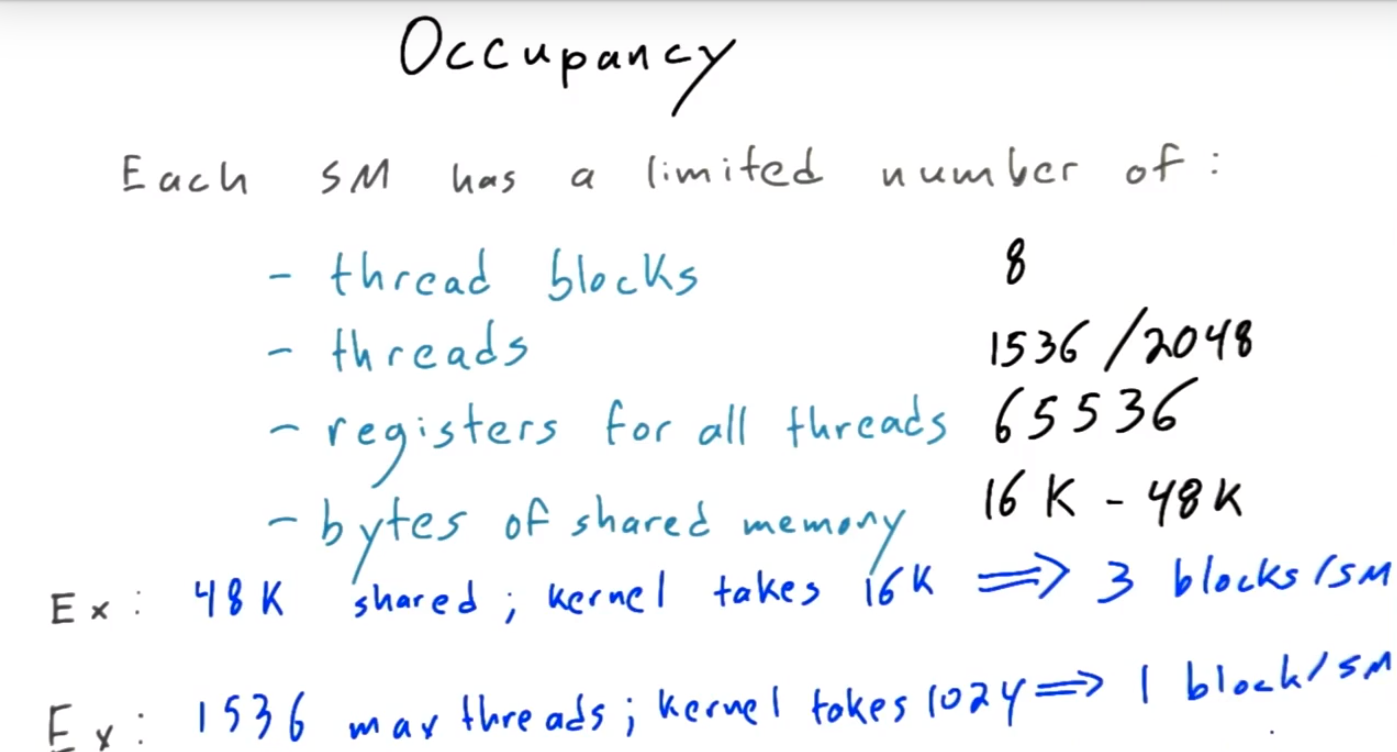 Occupancy
Each SM has a limited number of :
- thread blocks 8
- threads 1536 / 2048
- registers for all threads 65536
- bytes of shared memory 16 K - 48 K
Ex : 48 K shared ; kernel takes 16 K ⟹ 3 blocks / SM
Ex : 1536 max threads ; kernel takes 1024 ⟹ 1 block / SM